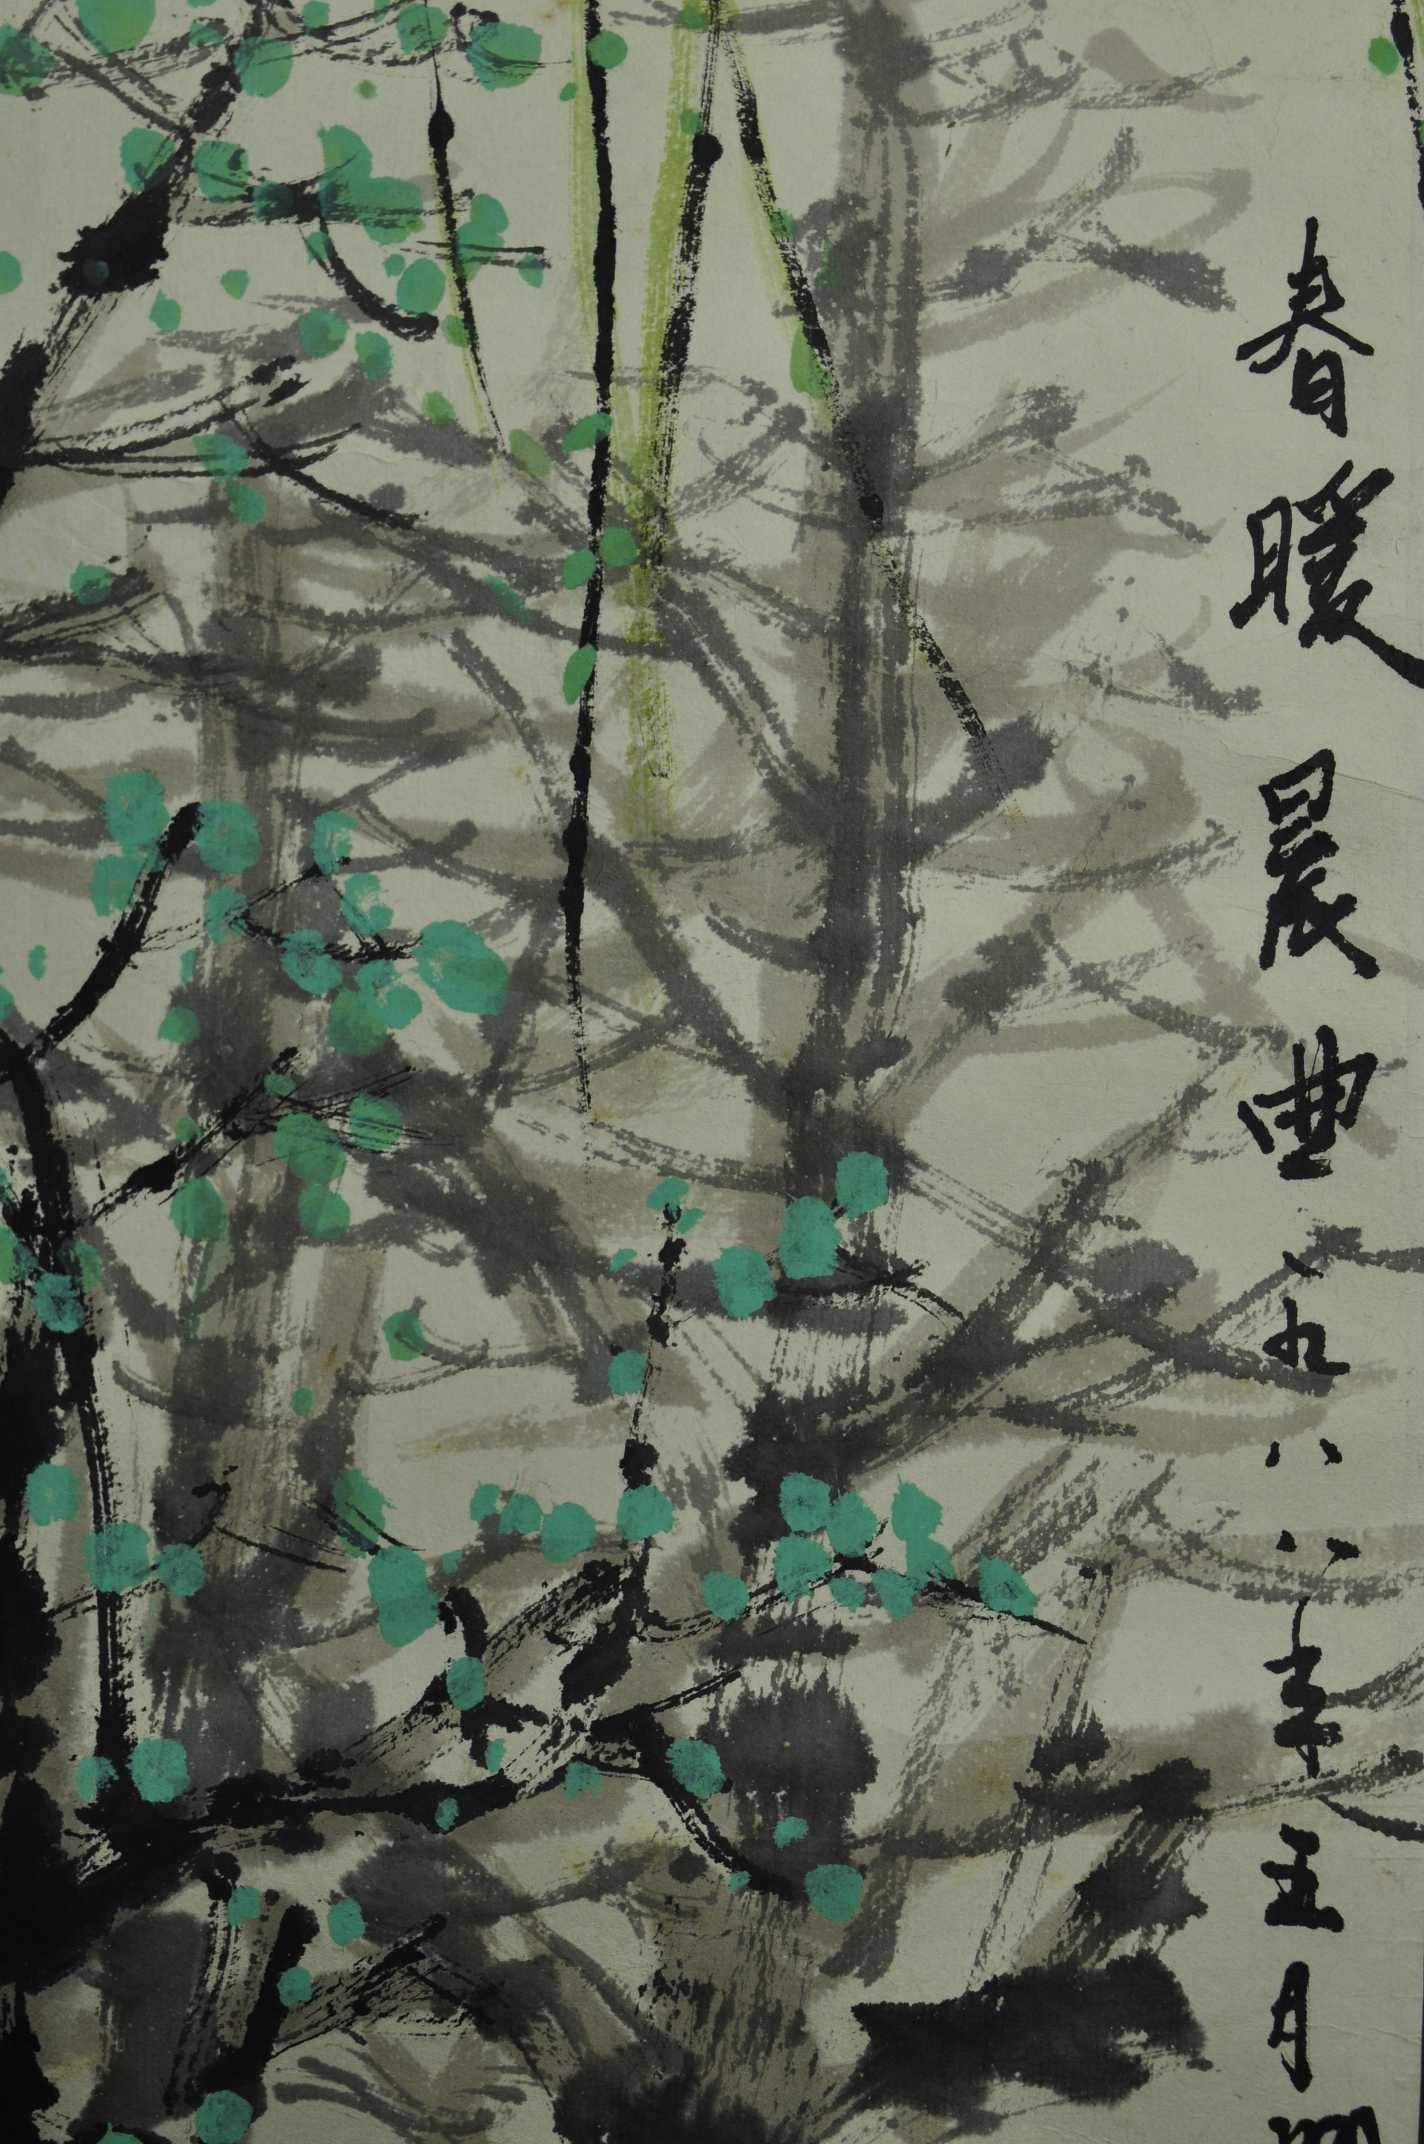 春暖晨曲 一九八八年五月